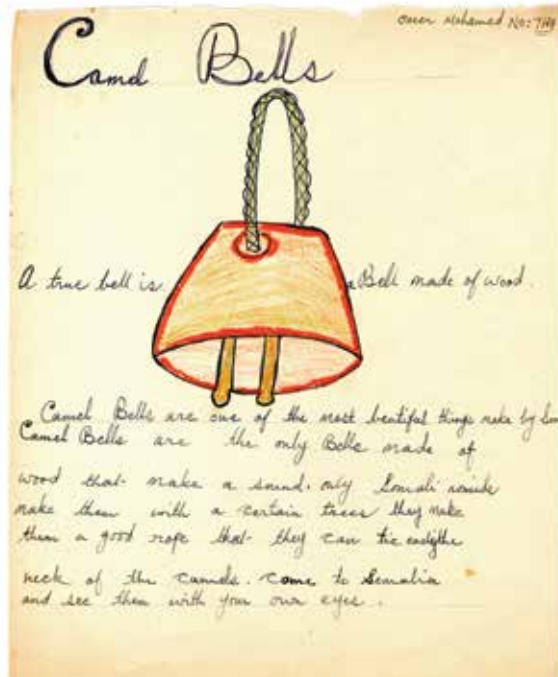 Omer Mohamed No: 7
Camel Bells
A true bell is a Bell made of wood.
Camel Bells are one of the most beatiful things make by
Camel Bells are the only Bells made of
wood that make a sound. only Somali
make them with a certain trees they make
them a good rope that they can tie the
neck of the camels. come to Somalia
and see them with your own eyes.